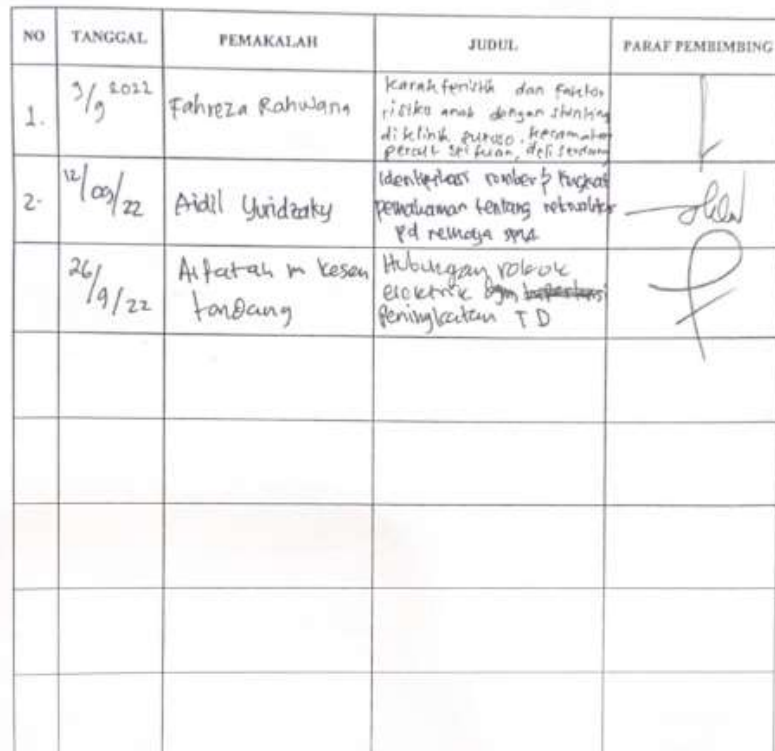 NO TANGGAL PEMAKALAH JUDUL PARAF PEMBIMBING
1. 3/9 2022 Fahreza Rahwana
Karakteristik dan faktor
risiko anak dengan stunting
di klinik
percut sei tuan, deli serdang
2. 12/09/22 Aidil Yuridzaky
tingkat
pemahaman tentang
pd remaja sma
26/9/22 Alfatah m kesen
tondang
Hubungan rokok
elektrik dgn
peningkatan TD